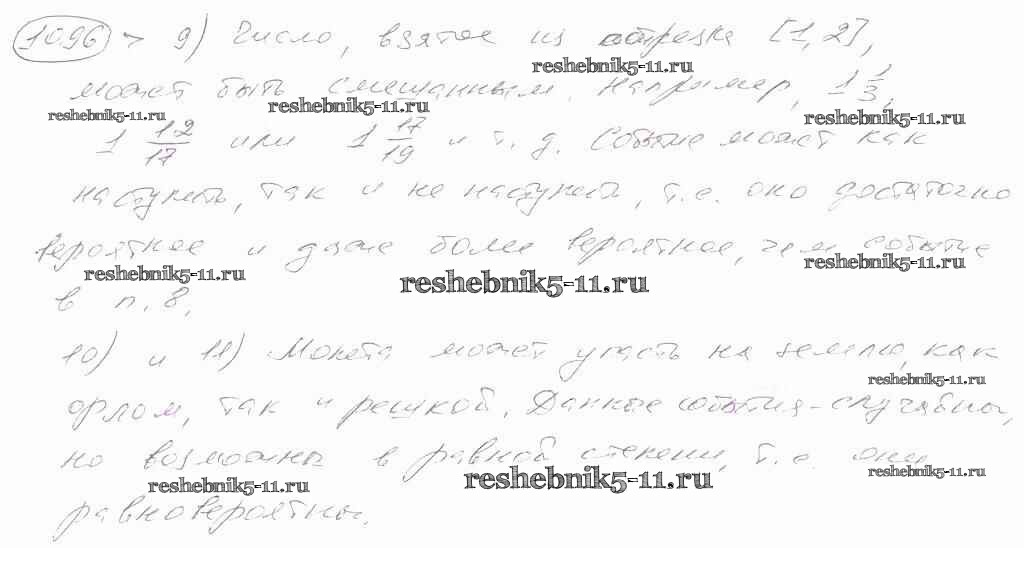 1096 > 9) Число, взятое из отрезка [1,2],
reshebnik5-11.ru
может быть смешанным. Например, 1 1/3,
reshebnik5-11.ru reshebnik5-11.ru reshebnik5-11.ru
1 12/17 или 1 17/19 и т. д. Событие может как
наступить, так и не наступить, т.е. оно достаточно
вероятное и даже более вероятное, чем событие
reshebnik5-11.ru reshebnik5-11.ru reshebnik5-11.ru
в п. 8.
10) и 11) Монета может упасть на землю, как
reshebnik5-11.ru
орлом, так и решкой. Данные события - случайны,
но возможны в равной степени, т.е. они
reshebnik5-11.ru reshebnik5-11.ru reshebnik5-11.ru
равновероятны.